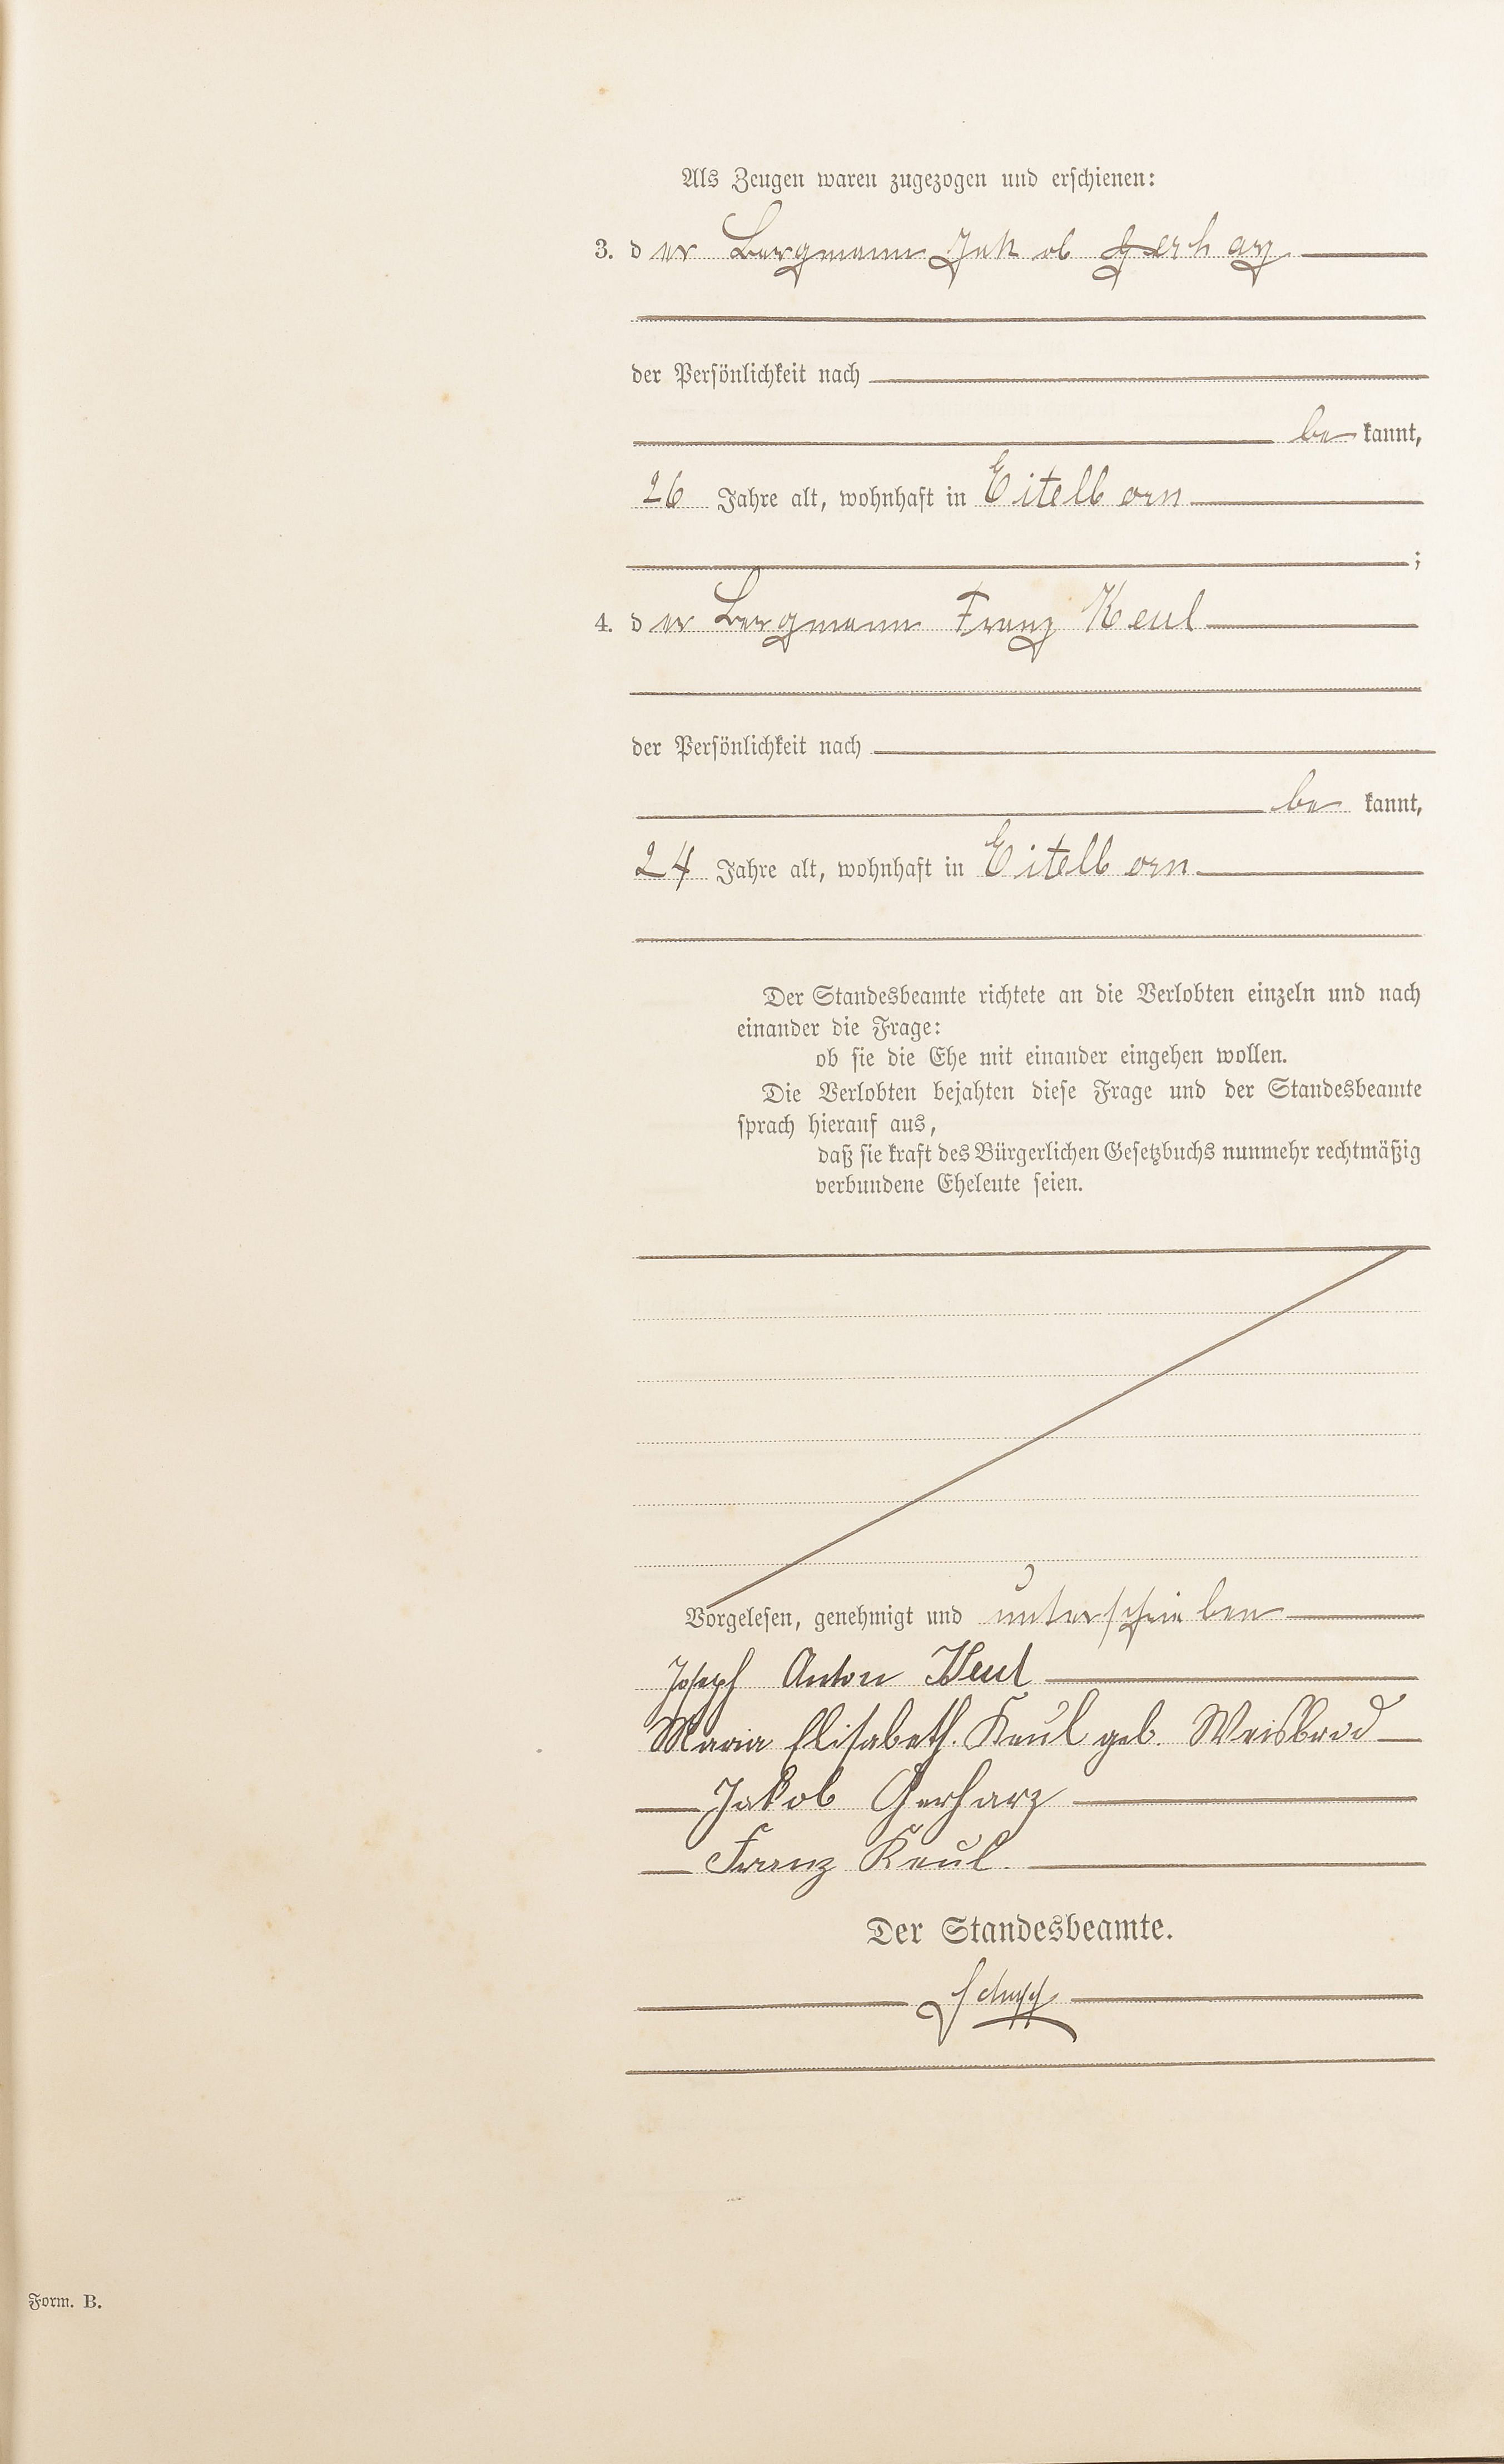 Als Zeugen waren zugezogen und erschienen:
3. der Bergmann Jakob Gerharz
der Persönlichkeit nach
bekannt,
26 Jahre alt, wohnhaft in Eitelborn
;
4. der Bergmann Franz Keul
der Persönlichkeit nach
bekannt,
24 Jahre alt, wohnhaft in Eitelborn
Der Standesbeamte richtete an die Verlobten einzeln und nach
einander die Frage:
ob sie die Ehe mit einander eingehen wollen.
Die Verlobten bejahten diese Frage und der Standesbeamte
sprach hierauf aus,
daß sie kraft des Bürgerlichen Gesetzbuchs nunmehr rechtmäßig
verbundene Eheleute seien.
Vorgelesen, genehmigt und unterschrieben
Joseph Anton Keul
Maria Elisabeth. Keul geb. Weisbrod
Jakob Gerharz
Franz Keul.
Der Standesbeamte.
Schupp
Form. B.